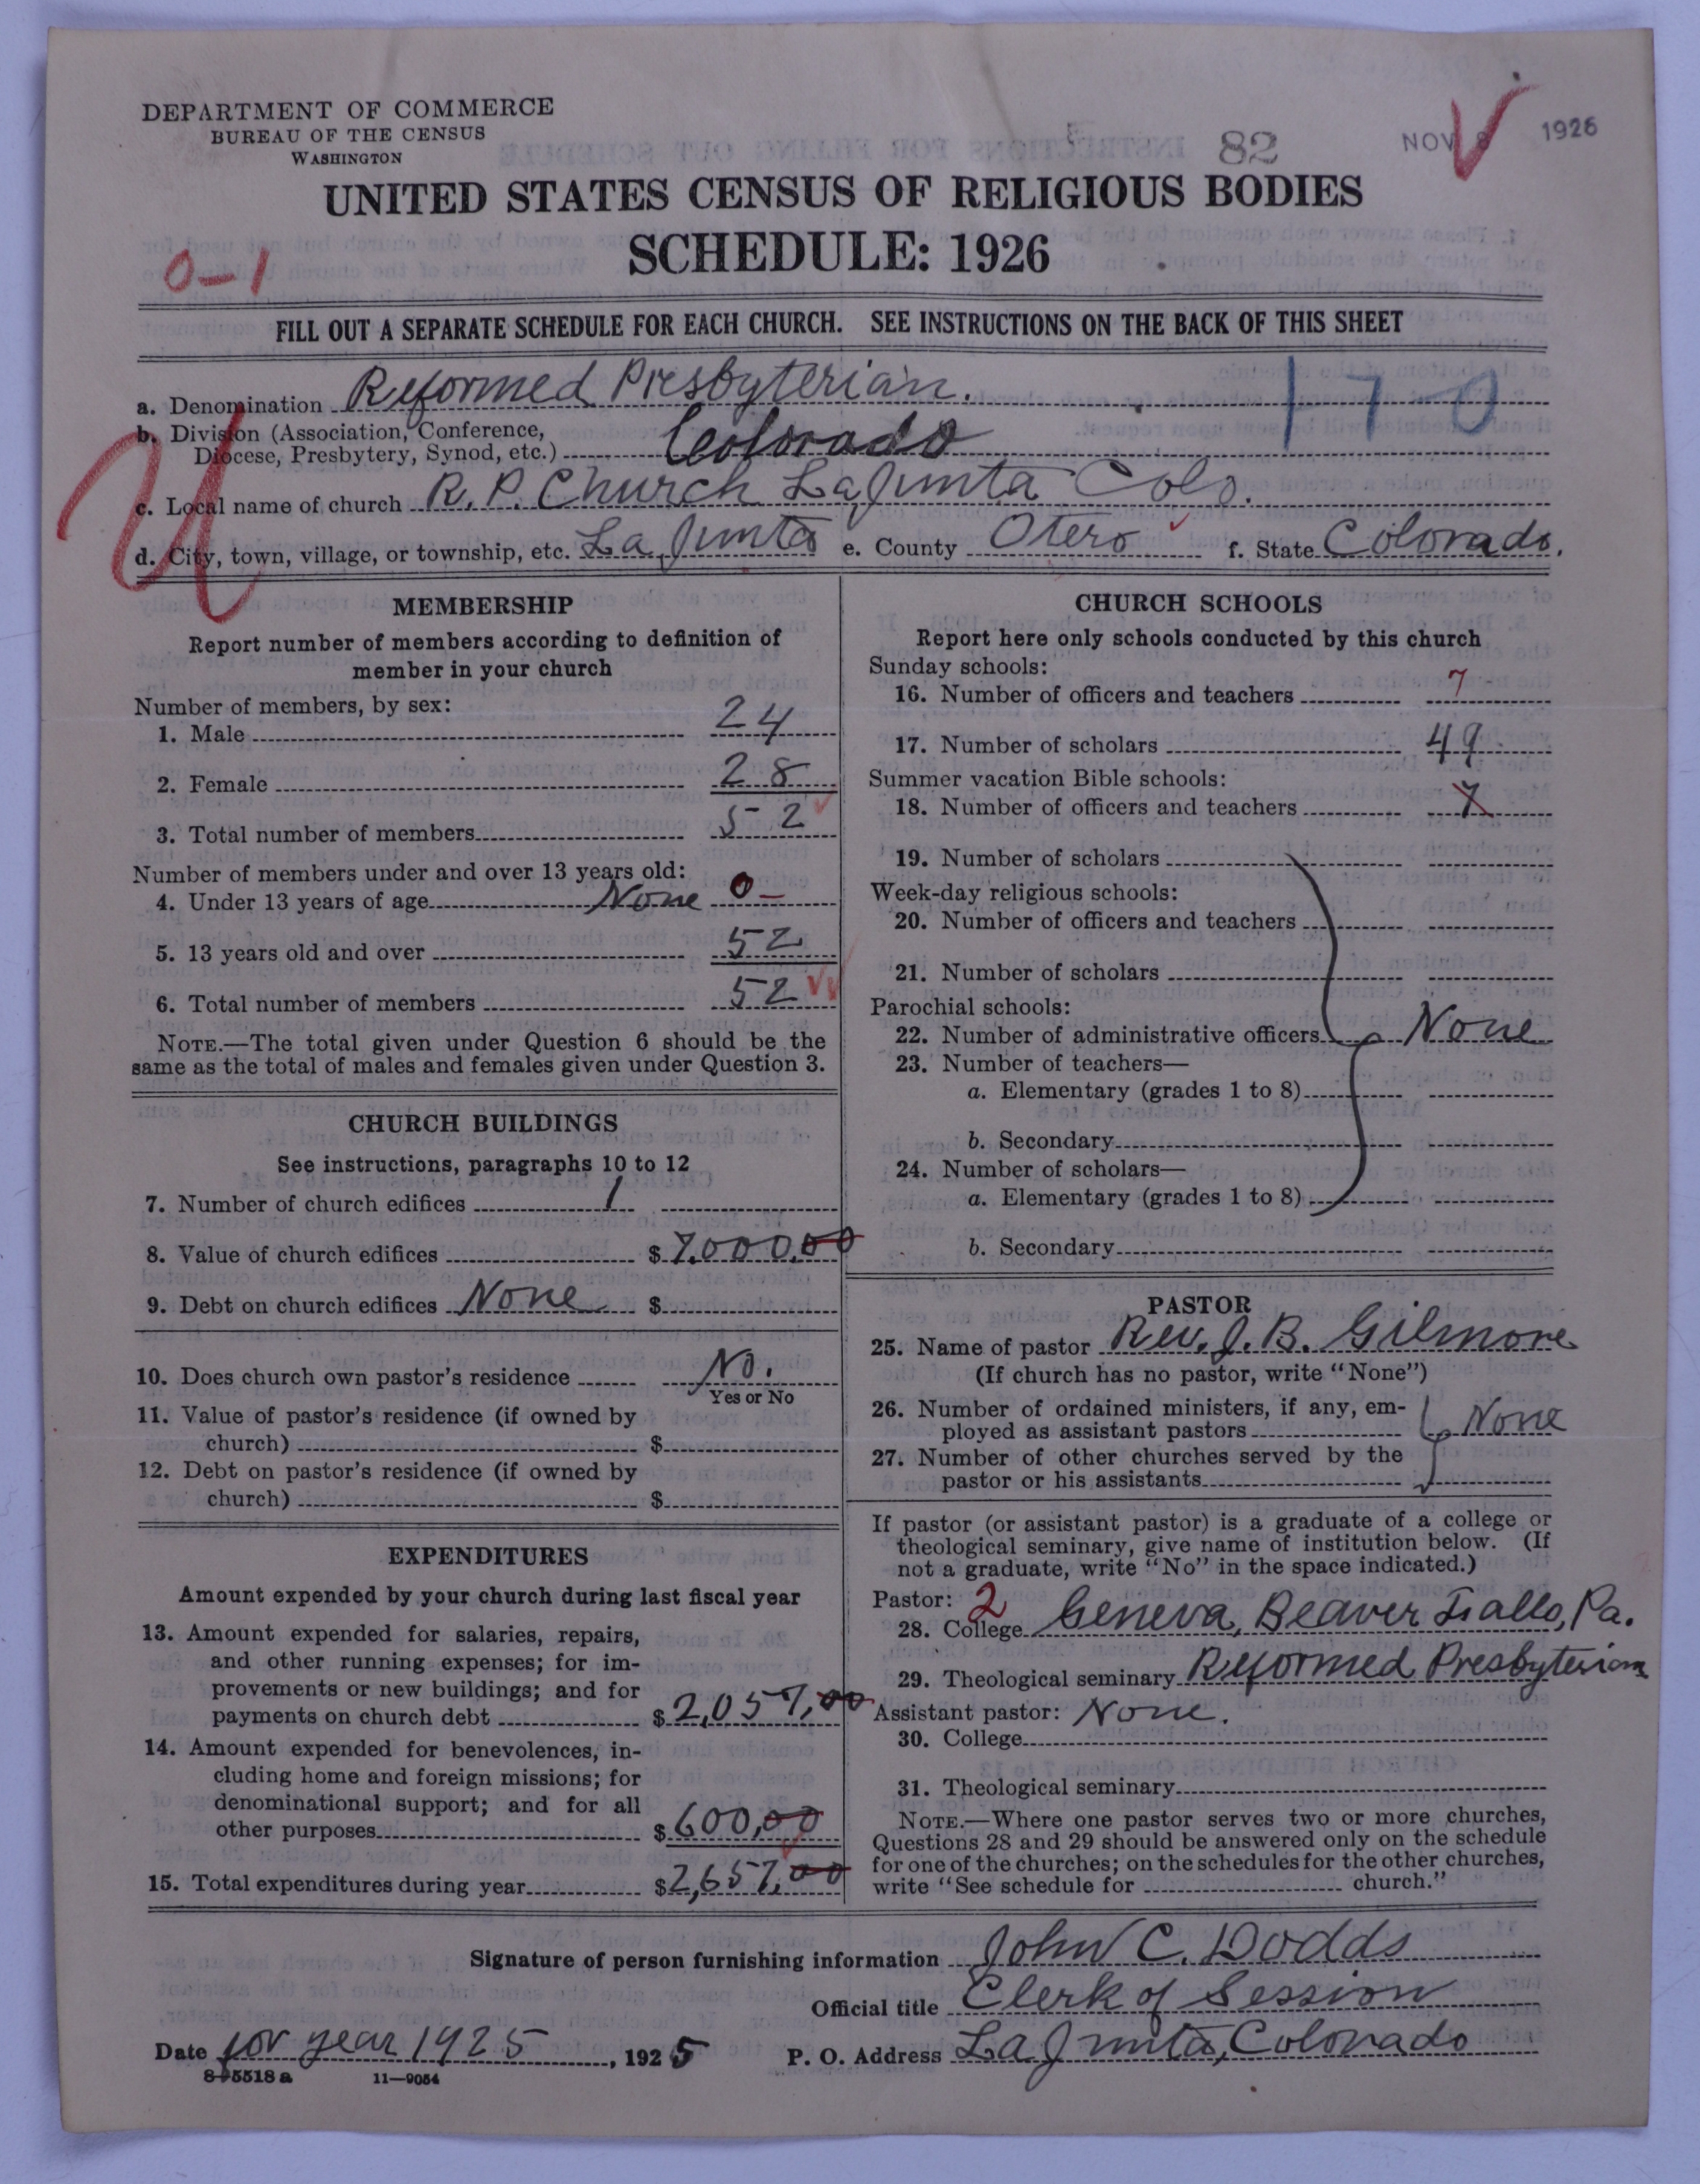 DEPARTMENT OF COMMERCE
BUREAU OF THE CENSUS
WASHINGTON
82
NOV 1926
UNITED STATES CENSUS OF RELIGIOUS BODIES
SCHEDULE: 1926
0-1
FILL OUT A SEPARATE SCHEDULE FOR EACH CHURCH. SEE INSTRUCTIONS ON THE BACK OF THIS SHEET
a. Denomination Reformed Presbyterian.
1-7-0
b. Division (Association, Conference,
Diocese, Presbytery, Synod, etc.) Colorado
c. Local name of church R. P. Church La Junta Colo.
d. City, town, village, or township, etc. La Junta e. County Otero f. State Colorado.
MEMBERSHIP
Report number of members according to definition of
member in your church
Number of members, by sex:
1. Male 24
2. Female 28
3. Total number of members 52
Number of members under and over 13 years old:
4. Under 13 years of age None 0-
5. 13 years old and over 52
6. Total number of members 52
NOTE.—The total given under Question 6 should be the
same as the total of males and females given under Question 3.
CHURCH BUILDINGS
See instructions, paragraphs 10 to 12
7. Number of church edifices 1
8. Value of church edifices $7,000,00
9. Debt on church edifices None $
10. Does church own pastor's residence No.
Yes or No
11. Value of pastor's residence (if owned by
church) $
12. Debt on pastor's residence (if owned by
church) $
EXPENDITURES
Amount expended by your church during last fiscal year
13. Amount expended for salaries, repairs,
and other running expenses; for im-
provements or new buildings; and for
payments on church debt $2,057,00
14. Amount expended for benevolences, in-
cluding home and foreign missions; for
denominational support; and for all
other purposes $600,00
15. Total expenditures during year $2,657,00
CHURCH SCHOOLS
Report here only schools conducted by this church
Sunday schools:
16. Number of officers and teachers 7
17. Number of scholars 49
Summer vacation Bible schools:
18. Number of officers and teachers 7
19. Number of scholars
Week-day religious schools:
20. Number of officers and teachers
21. Number of scholars
Parochial schools:
22. Number of administrative officers None
23. Number of teachers—
a. Elementary (grades 1 to 8)
b. Secondary
24. Number of scholars—
a. Elementary (grades 1 to 8)
b. Secondary
PASTOR
25. Name of pastor Rev. J. B. Gilmore
(If church has no pastor, write "None")
26. Number of ordained ministers, if any, em-
ployed as assistant pastors None
27. Number of other churches served by the
pastor or his assistants
If pastor (or assistant pastor) is a graduate of a college or
theological seminary, give name of institution below. (If
not a graduate, write "No" in the space indicated.)
Pastor: 2
28. College Geneva, Beaver Falls, Pa.
29. Theological seminary Reformed Presbyterian
Assistant pastor: None.
30. College
31. Theological seminary
NOTE.—Where one pastor serves two or more churches,
Questions 28 and 29 should be answered only on the schedule
for one of the churches; on the schedules for the other churches,
write "See schedule for church."
Signature of person furnishing information John C. Dodds
Official title Clerk of Session
Date for year 1925, 1925 P. O. Address La Junta, Colorado
8-5518a 11-9054